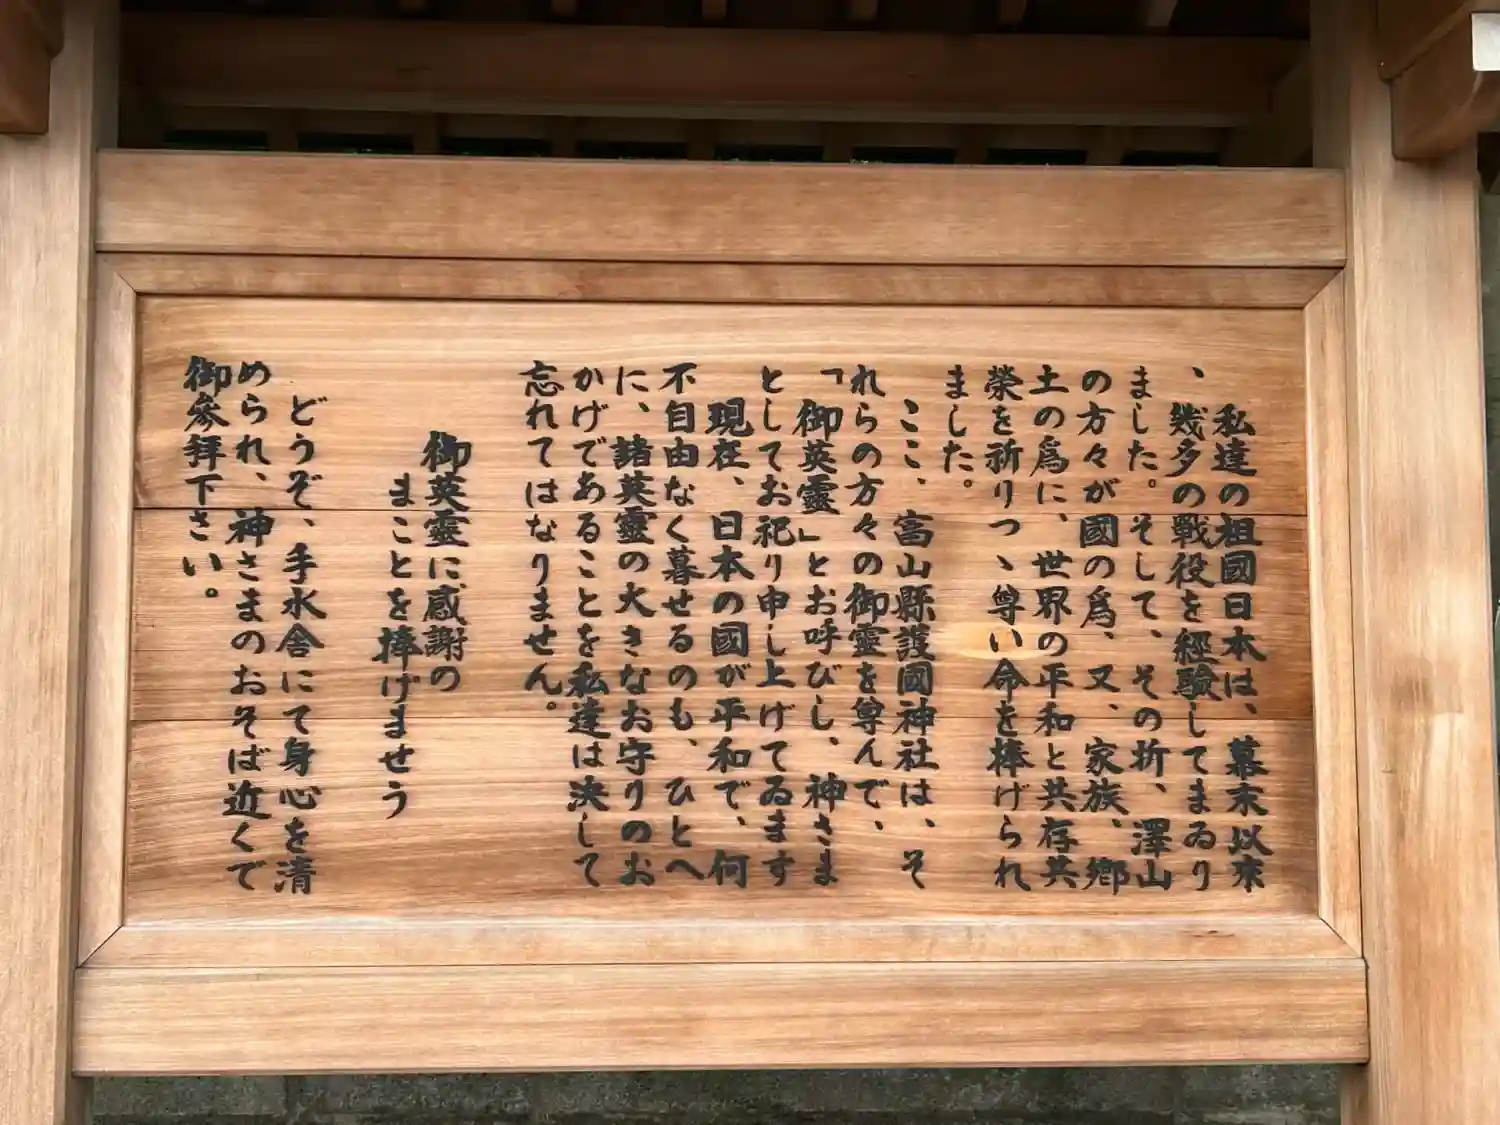 私達の祖國日本は、幕末以來
、幾多の戰役を經驗してまゐり
ました。そして、その折、澤山
の方々が國の爲、又、家族、鄕
土の爲に、世界の平和と共存共
榮を祈りつゝ尊い命を捧げられ
ました。
ここ、富山縣護國神社は、そ
れらの方々の御靈を尊んで、
「御英靈」とお呼びし、神さま
としてお祀り申し上げてゐます
現在、日本の國が平和で、何
不自由なく暮せるのも、ひとへ
に、諸英靈の大きなお守りのお
かげであることを私達は決して
忘れてはなりません。
御英靈に感謝の
まことを捧げませう
どうぞ、手水舍にて身心を清
められ、神さまのおそば近くで
御參拜下さい。